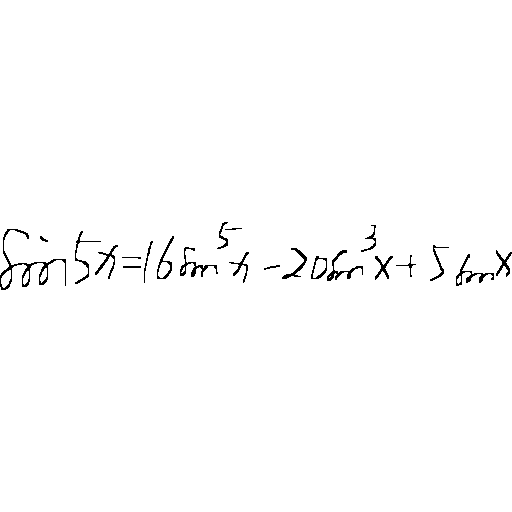 sin5x=16sin⁵x-20sin³x+5sinx